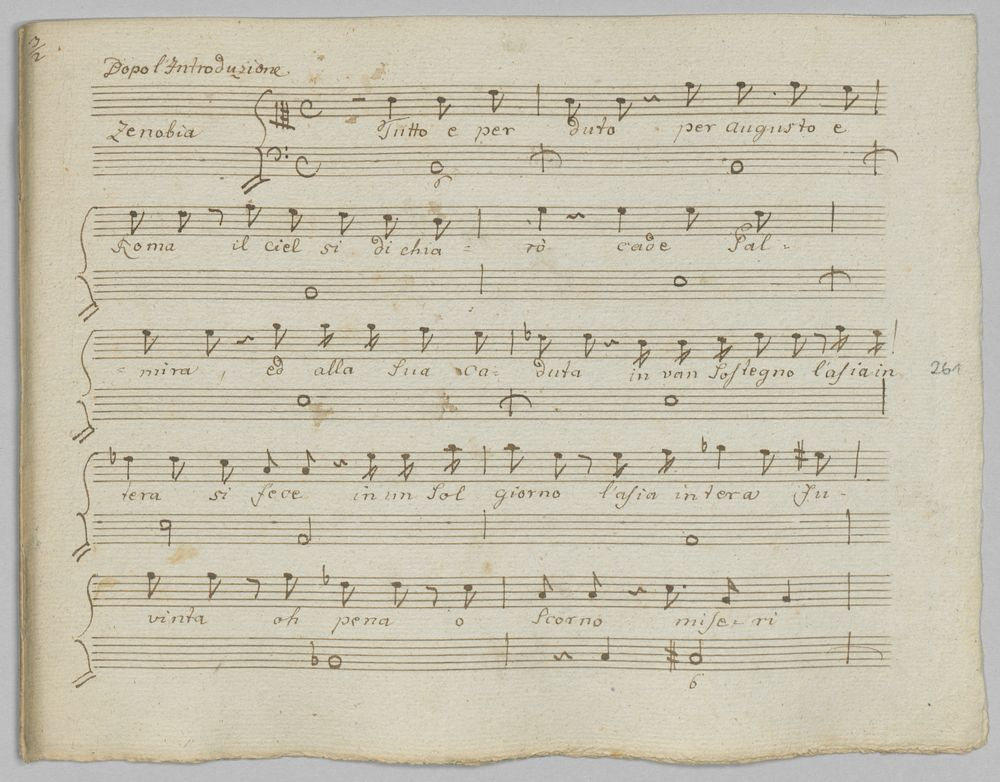 3/2
Dopo l'Introduzione
Zenobia Tutto e per duto per augusto e
6
Roma il ciel si di chia = rò cade Pal =
= mira, ed alla sua ca = duta in van sostegno l'asia in
261
tera si fece in un sol giorno l'asia intera fu =
vinta oh pena o scorno mise = ri
6